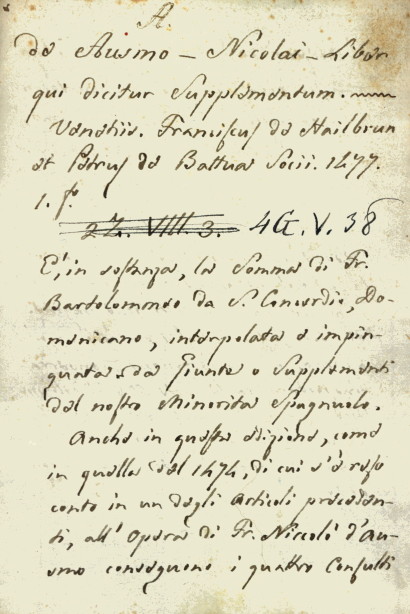 A.
de Ausmo - Nicolai - Liber
qui dicitur Supplementum.
Venetiis. Franciscus de Hailbrun
et Petrus de Battua Socii. 1477.
1. f.
2Z. VIII. 3. 4G. V. 38
E', in sostanza, la Somma di Fr.
Bartolommeo da S. Concordio, Do-
menicano, interpolata e impin-
guata da Giunte o Supplementi
del nostro Minorita Spagnuolo.
Anche in questa edizione, come
in quella del 1474, di cui s'è reso
conto in un degli Articoli preceden-
ti, all' Opera di Fr. Niccolò d'Au-
smo conseguono i quattro Consulti